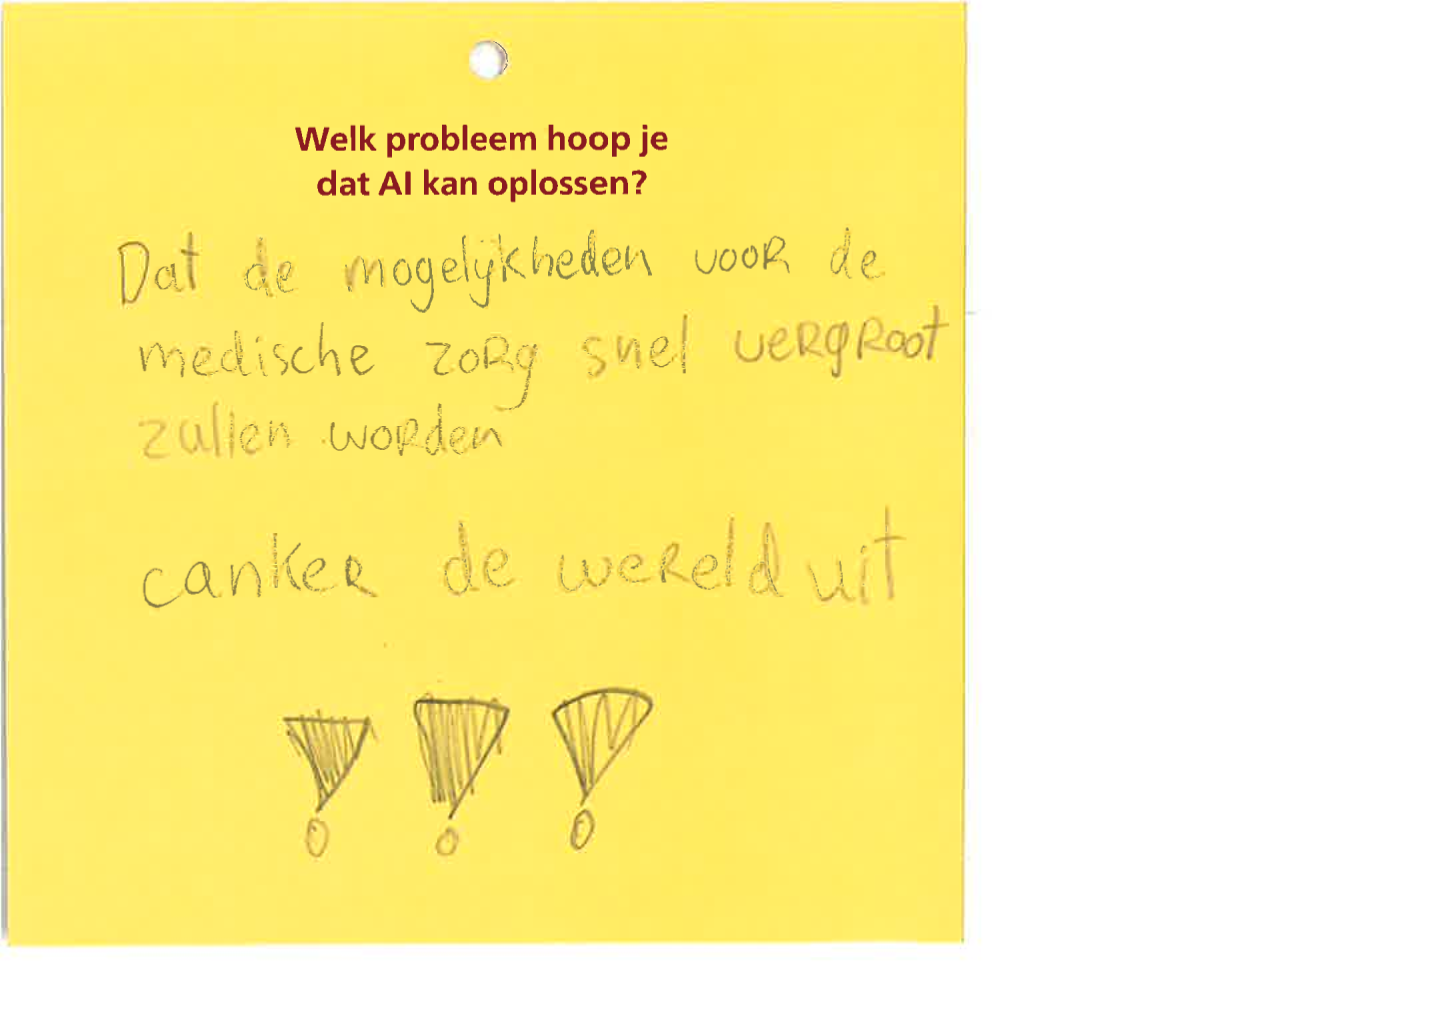 Welk probleem hoop je
dat AI kan oplossen?
Dat de mogelijkheden voor de
medische zorg snel vergroot
zullen worden
canker de wereld uit
!!!